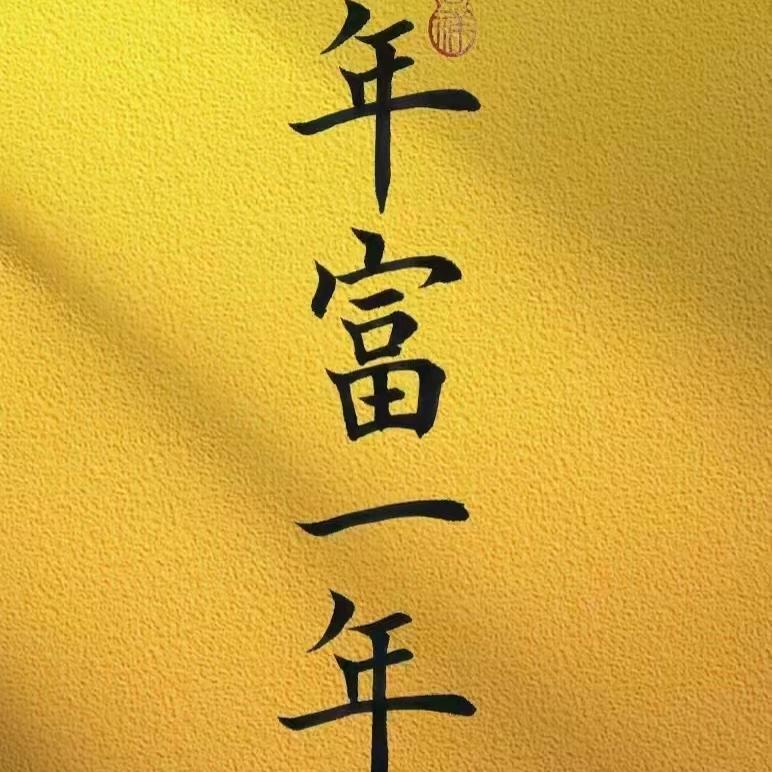 年富一年
祥